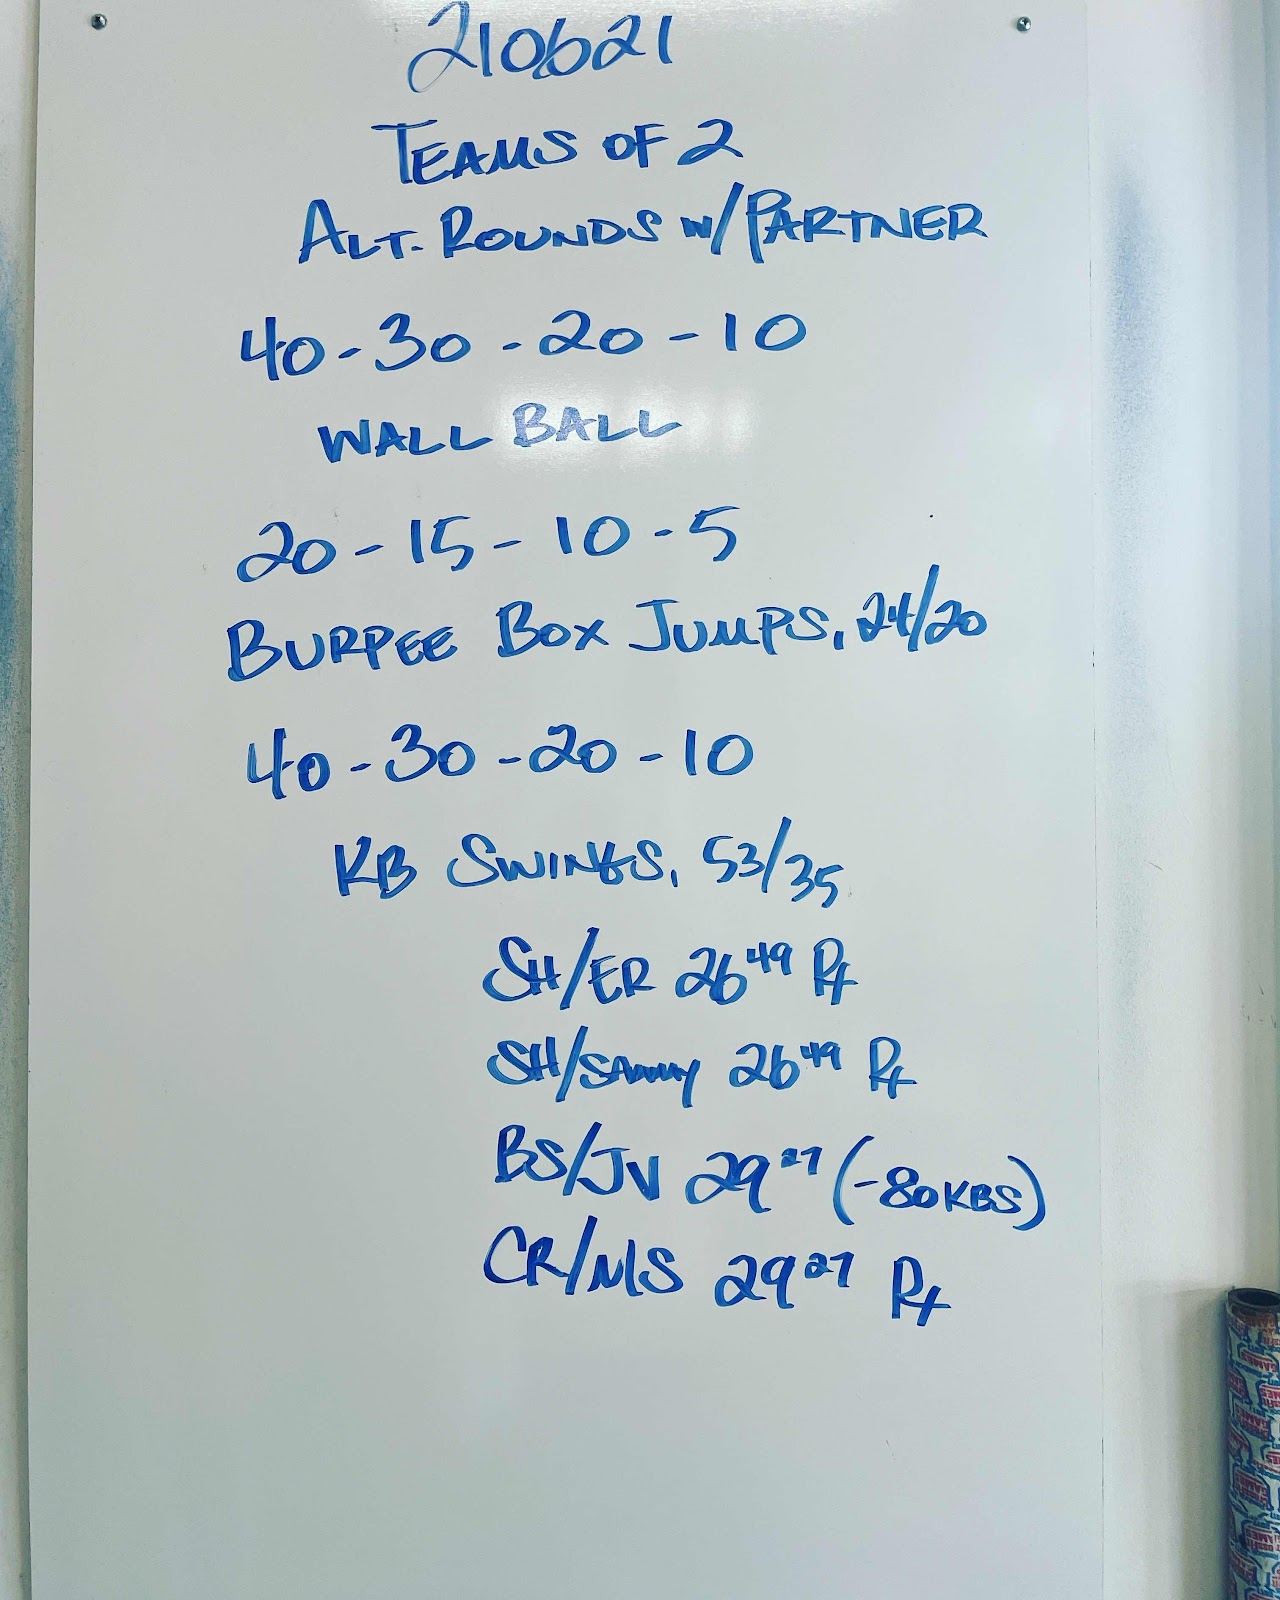 210621
TEAMS OF 2
ALT. ROUNDS W/PARTNER
40-30-20-10
WALL BALL
20-15-10-5
BURPEE BOX JUMPS, 24/20
40-30-20-10
KB SWINGS, 53/35
SH/ER 26 49 Rx
SH/SAMMY 26 49 Rx
BS/JV 29 27 (-80KBS)
CR/MS 29 27 Rx